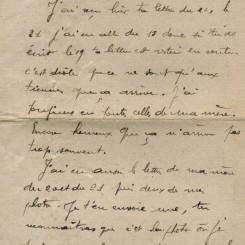 J'ai reçu hier ta lettre du 21, le
22 j'ai eu celle du 18 donc si tu as
écrit le 19 ta lettre est restée en route.
c'est drôle que ce ne sont qu'aux
tiennes que ça arrive. j'ai
toujours eu toutes celles de ma mère.
Encore heureux que ça n'arrive pas
trop souvent.
J'ai eu aussi la lettre de ma mère
du 20 et du 21 puis deux de mes
photos. Je t'en envoie une, tu
reconnaîtras que c'est la photo où je